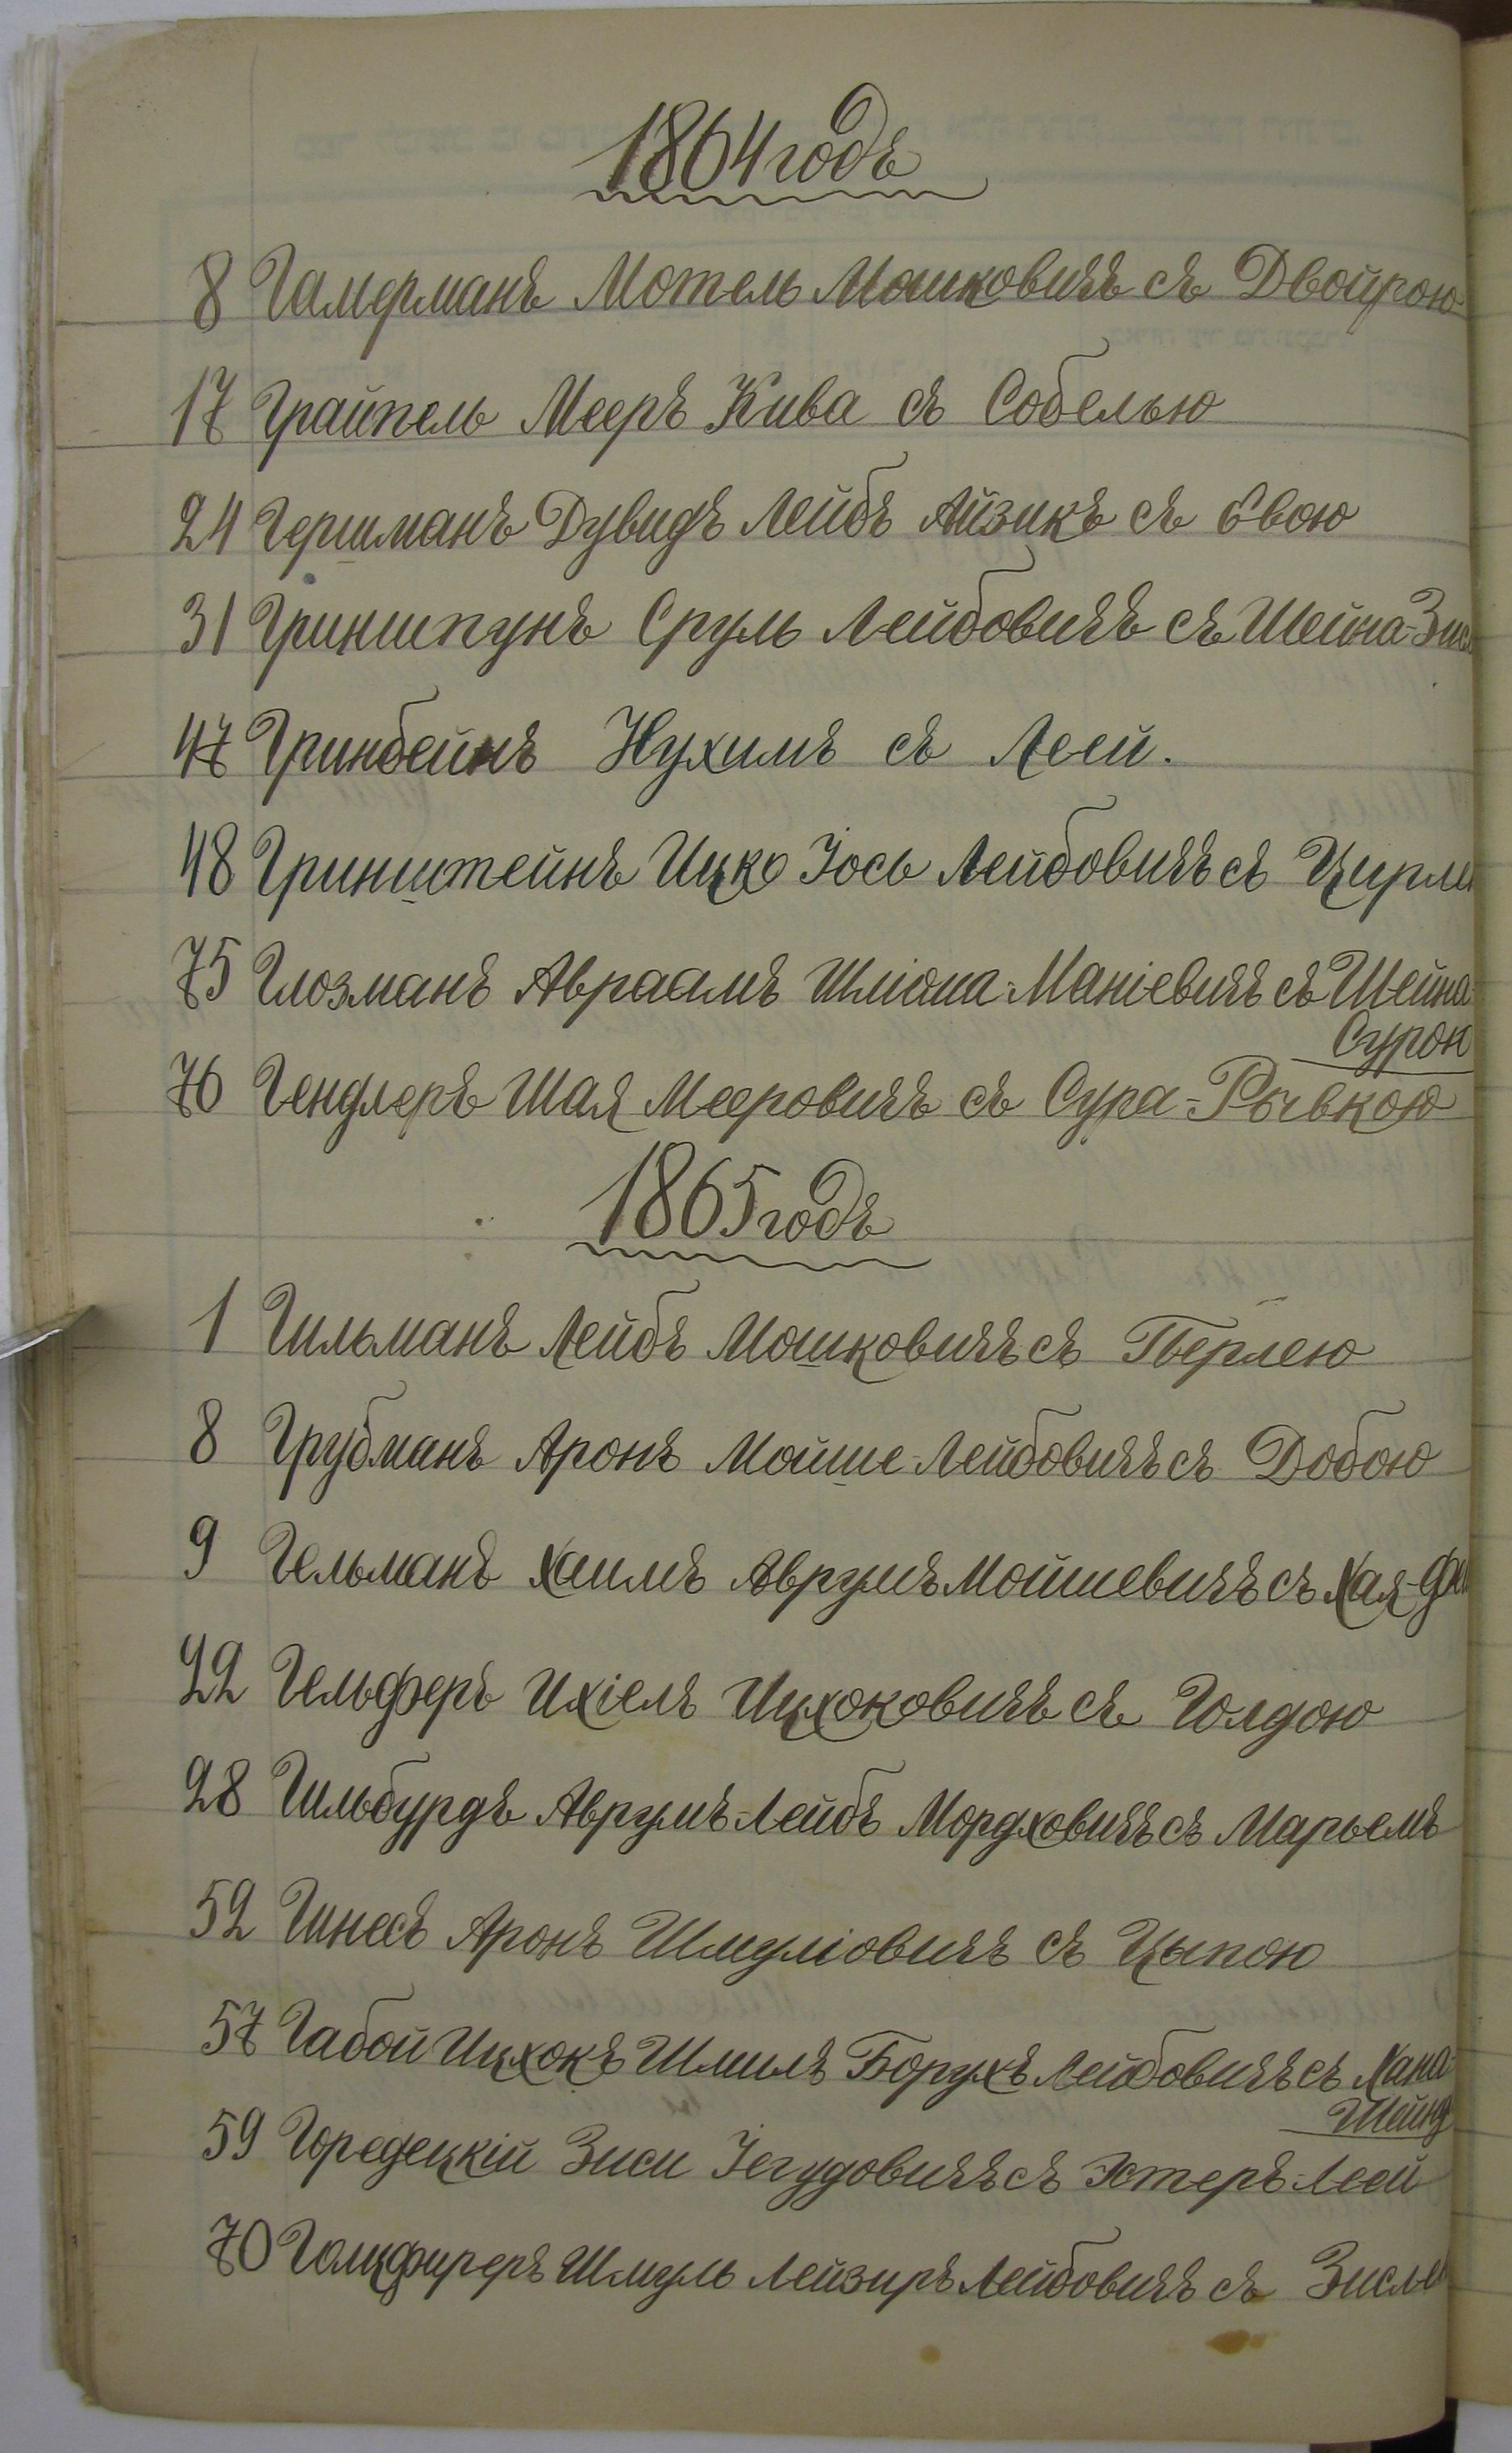 1864 годъ
8 Гамерманъ Мотель Мошковичъ съ Двойрою
17 Грайпель Мееръ Кива съ Собелью
24 Гершманъ Дувидъ Лейбъ Айзикъ съ Евою
31 Гриншпунъ Сруль Лейбовичъ съ Шейна-Зисл
47 Гринбейнъ Нухимъ съ Леей.
48 Гринштейнъ Ицко Іось Лейбовичъ съ Цирле
75 Глозманъ Авраамъ Шліома-Маніевичъ съ Шейна-
Сурою
76 Гендлеръ Шая Мееровичъ съ Сура-Рывкою
1865 годъ
1 Гильманъ Лейбъ Мошковичъ съ Перлею
8 Грубманъ Аронъ Мойше-Лейбовичъ съ Добою
9 Гельманъ Хаимъ Аврумъ Мойшевичъ съ Хая-
22 Гельферъ Ихіелъ Ицхоковичъ съ Голдою
28 Гильбурдъ Аврумъ-Лейбъ Мордховичъ съ Марьемъ
52 Гинесъ Аронъ Шмуліовичъ съ Цыпою
57 Габой Ицхокъ Шмилъ Борухъ Лейбовичъ съ Хана-
Шейнд
59 Горедецкій Зиси Іегудовичъ съ Эстеръ-Леей
70 Голцфиреръ Шмуль Лейзиръ Лейбовичъ съ Зисле